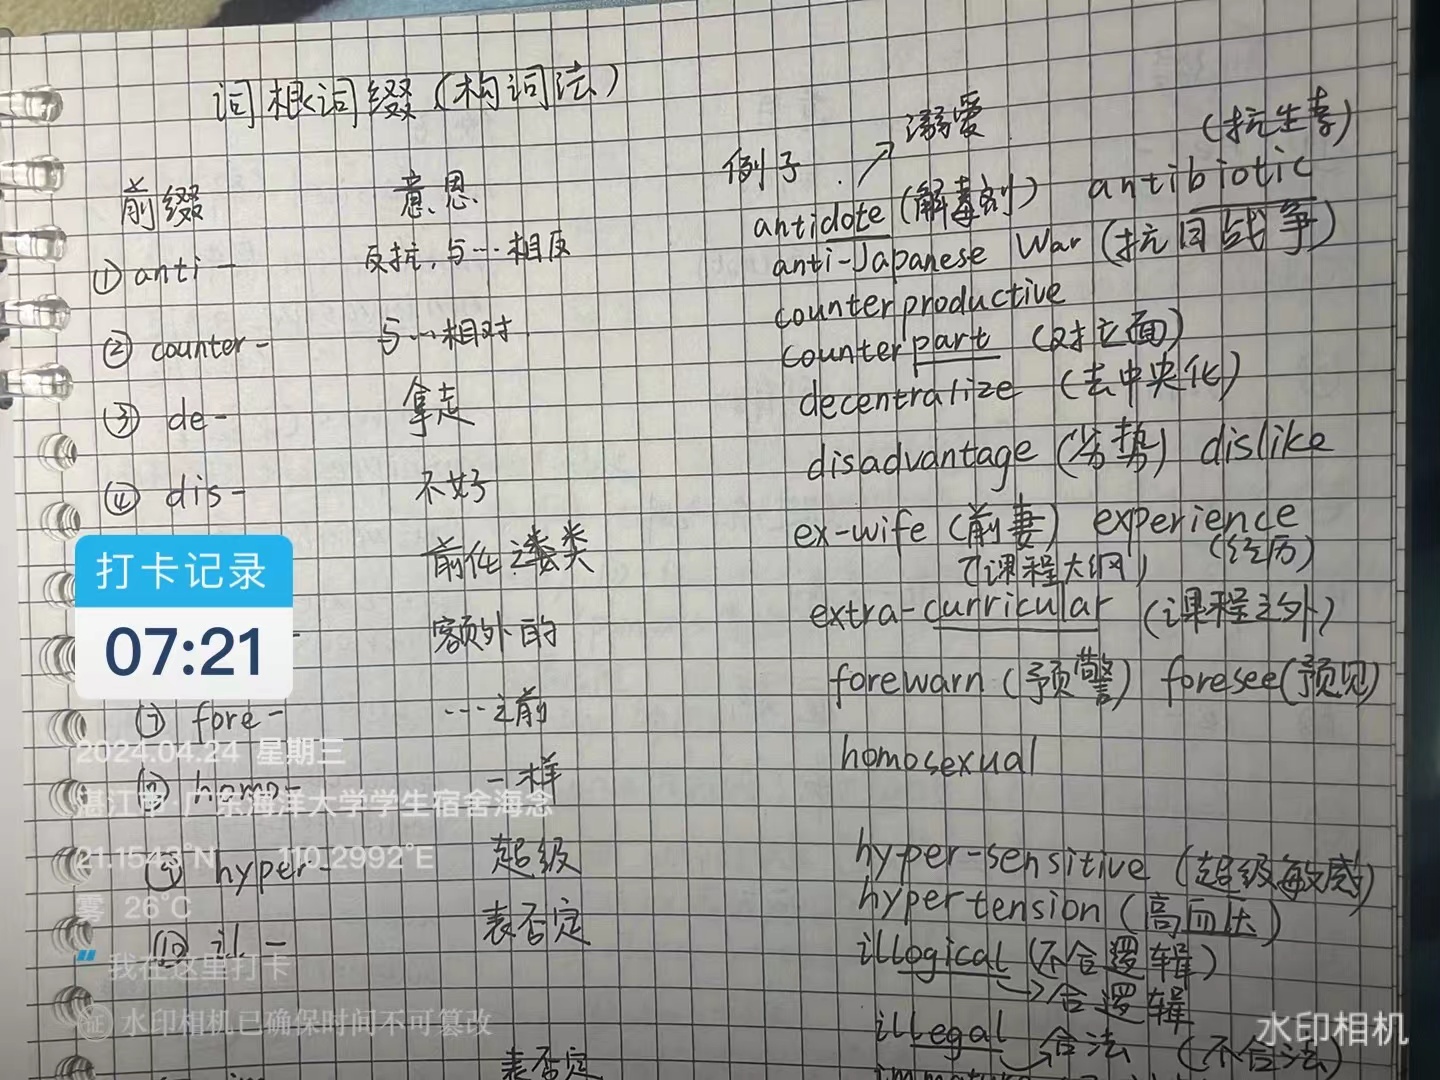 词根词缀(构词法)
前缀 意思 例子 溺爱 (抗生素)
① anti- 反抗,与…相反 antidote (解毒剂) antibiotic
anti-Japanese War (抗日战争)
② counter- 与…相对 counterproductive
counterpart (对立面)
③ de- 拿走 decentralize (去中央化)
④ dis- 不好 disadvantage (劣势) dislike
前任之类 ex-wife (前妻) experience
(经历)
(课程大纲)
额外的 extra-curricular (课程之外)
⑦ fore- …之前 forewarn (预警) foresee(预见)
⑧ homo- 一样 homosexual
⑨ hyper- 超级 hyper-sensitive (超级敏感)
hypertension (高血压)
⑩ il- 表否定 illogical (不合逻辑)
合逻辑
illegal 合法 (不合法)
表否定
打卡记录
07:21
2024.04.24 星期三
湛江市·广东海洋大学学生宿舍海念
21.1543°N 110.2992°E
雾 26°C
我在这里打卡
证 水印相机已确保时间不可篡改
水印相机